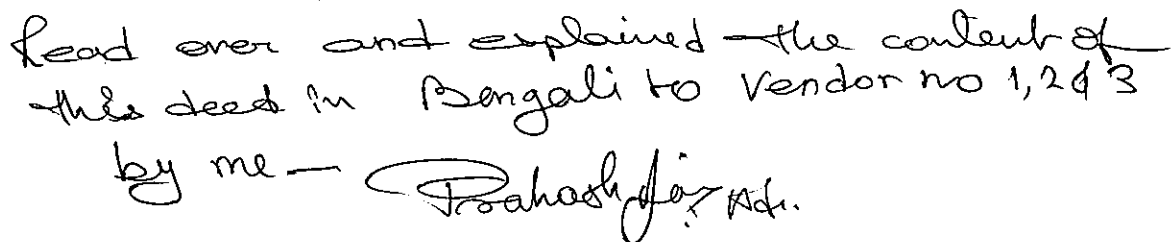 Read over and explained the content of
this deed in Bengali to Vendor no 1, 2 & 3
by me — Prakash Adv.